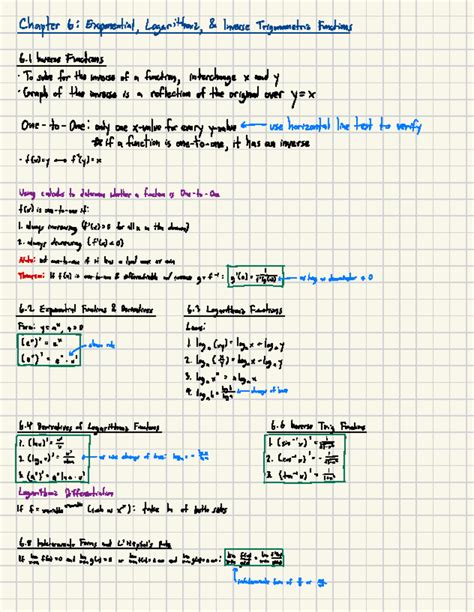 Chapter 6: Exponential, Logarithmic, & Inverse Trigonometric Functions
6.1 Inverse Functions
· To solve for the inverse of a function, interchange x and y
· Graph of the inverse is a reflection of the original over y=x
One-to-One: only one x-value for every y-value ← use horizontal line test to verify
* If a function is one-to-one, it has an inverse
· f(x)=y ⟷ f⁻¹(y)=x
Using calculus to determine whether a function is One-to-One
f(x) is one-to-one if:
1. always increasing (f'(x)>0 for all x in the domain)
2. always decreasing (f'(x)<0)
Note: not one-to-one if it has a local max or min
Theorem: If f(x) is one-to-one & differentiable w/ inverse g=f⁻¹:
as long as denominator ≠ 0
6.2 Exponential Functions & Derivatives
Form: y=aˣ, a>0
(aˣ)'
chain rule
6.3 Logarithmic Functions
Laws:
1. logₐ(xy)=logₐx+logₐy
2. logₐ(x/y)=logₐx-logₐy
3. logₐxⁿ=n logₐx
4. change of base
6.4 Derivatives of Logarithmic Functions
1. (ln u)'=u'/u
2.
or use change of base:
3.
Logarithmic Differentiation
If f = variable^variable (such as xˣ): take ln of both sides
6.6 Inverse Trig Functions
1. (sin⁻¹u)'
2. (cos⁻¹u)'
3. (tan⁻¹u)'
6.8 Indeterminate Forms and L'Hôpital's Rule
If lim f(x)=0 and lim g(x)=0 or
Indeterminate form of